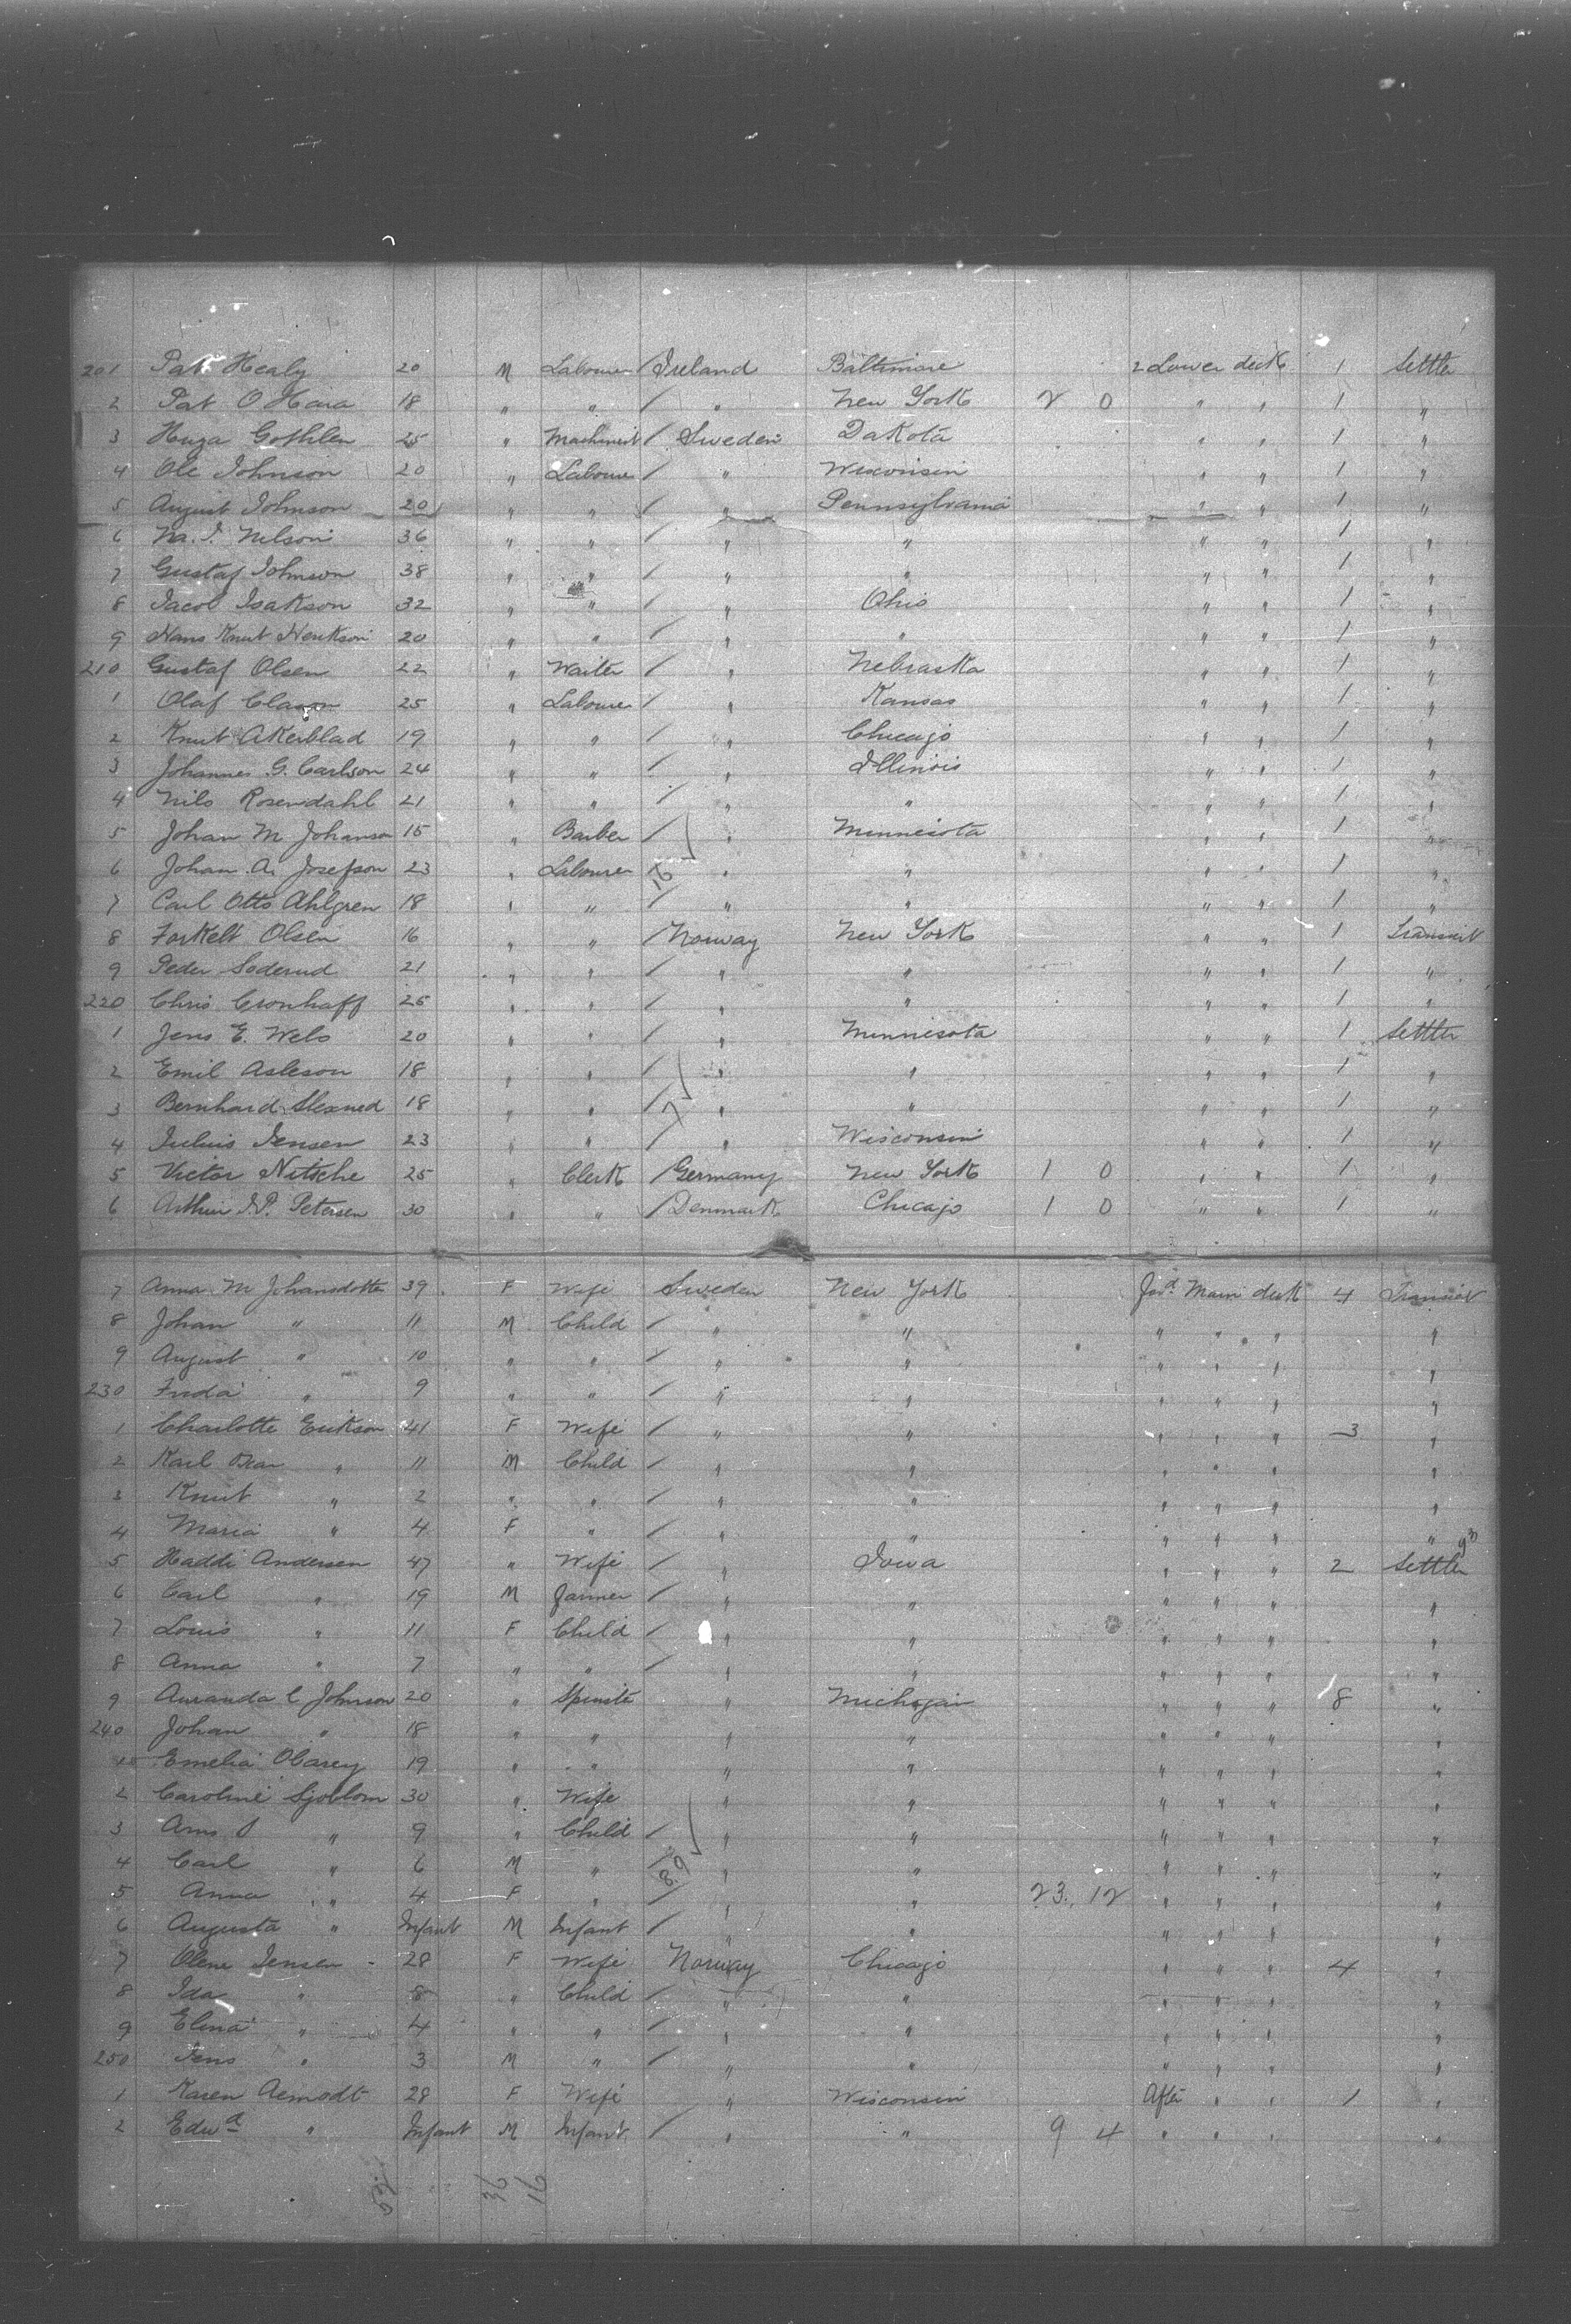 201 Pat Healy 20 M Labourer Ireland Baltimore 2 Lower deck 1 Settler
2 Pat O'Hara 18 " " / " New York 2 0 " " 1 "
3 Gothlen 25 " Machinist / Sweden Dakota " " 1 "
4 Ole Johnson 20 " Labourer / " Wisconsin " " 1 "
5 August Johnson 20 " " / " Pennsylvania " " 1 "
6 Nelson 36 " " / " " " " 1 "
7 Gustaf Johnson 38 " " / " " " " 1 "
8 Jacob Isakson 32 " " / " Ohio " " 1 "
9 Hans Knut Henkson 20 " " / " " " " 1 "
210 Gustaf Olsen 22 " Waiter / " Nebraska " " 1 "
1 Olaf Clason 25 " Labourer / " Kansas " " 1 "
2 Knut Akerblad 19 " " / " Chicago " " 1 "
3 Johannes G. Carlson 24 " " / " Illinois " " 1 "
4 Nils Rosendahl 21 " " / " " " " 1 "
5 Johan M Johanson 15 " Barber / " Minnesota " " 1 "
6 Johan A. Josefson 23 " Labourer / 16 " " " " 1 "
7 Carl Otto Ahlgren 18 " " / " " " " 1 "
8 Torkelt Olsen 16 " " / Norway New York " " 1 Transit
9 Peder Soderud 21 " " / " " " " 1 "
220 Chris Cronhaff 25 " " / " " " " 1 "
1 Jens E. Wels 20 " " / " Minnesota " " 1 Settler
2 Emil Asleson 18 " " / " " " " 1 "
3 Bernhard 18 " " / 7 " " " " 1 "
4 Julius Jensen 23 " " / " Wisconsin " " 1 "
5 Victor Nitsche 25 " Clerk / Germany New York 1 0 " " 1 "
6 Arthur Petersen 30 " " / Denmark Chicago 1 0 " " 1 "
7 Anna M Johansdotter 39 F Wife Sweden New York For'd Main deck 4 Transit
8 Johan " 11 M Child / " " " " " "
9 August " 10 " " / " " " " " "
230 Frida " 9 " " / " " " " " "
1 Charlotte Erikson 41 F Wife / " " " " " 3 "
2 Karl Oscar " 11 M Child / " " " " " "
3 Knut " 2 " " / " " " " " "
4 Maria " 4 F " / " " " " " "
5 Haddi Andersen 47 " Wife / " Iowa " " " 2 Settler
6 Carl " 19 M Farmer / " " " " " "
7 Louis " 11 F Child / " " " " " "
8 Anna " 7 " " / " " " " " "
9 Amanda C Johnson 20 " Spinster " Michigan " " " 8 "
240 Johan " 18 " " " " " " " "
Emelia 19 " " " " " " " "
2 Caroline Sjoblom 30 " Wife " " " " " "
3 " 9 " Child / " " " " " "
4 Carl " 6 M " / " " " " " "
5 Anna " 4 F " / " " 23. 12 " " " "
6 Augusta " Infant M Infant / " " " " " "
7 Olene Jensen 28 F Wife Norway Chicago " " " 4 "
8 Ida " 8 " Child / " " " " " "
9 Elina " 4 " " / " " " " " "
250 Jens " 3 M " / " " " " " "
1 Karen Aemodt 28 F Wife " Wisconsin After " " 1 "
2 Edwd " Infant M Infant / " " 9 4 " " " "
36 16